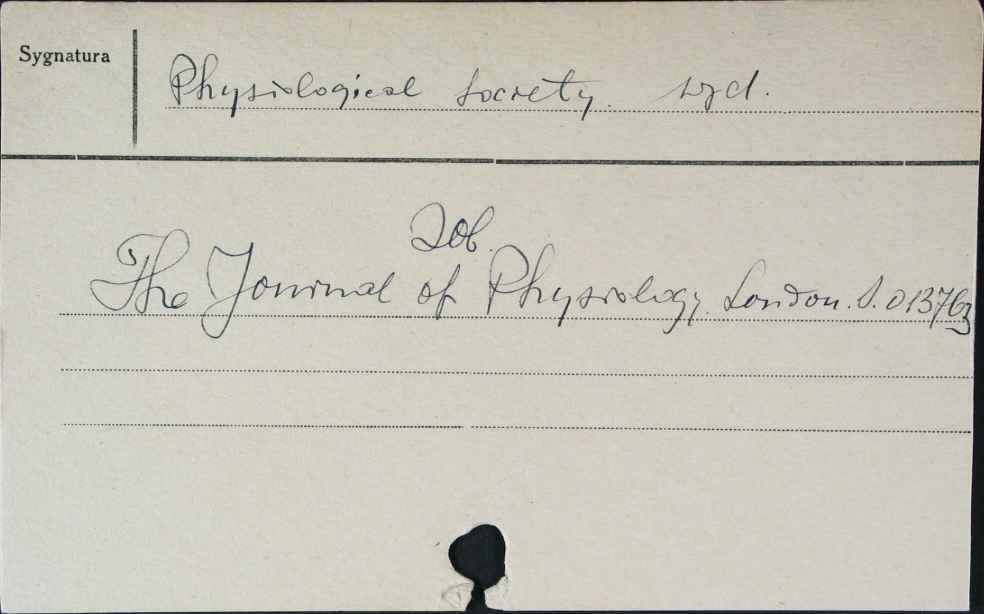 Sygnatura
Physiological Society. wyd.
Zob.
The Journal of Physiology. London. S. 01376z